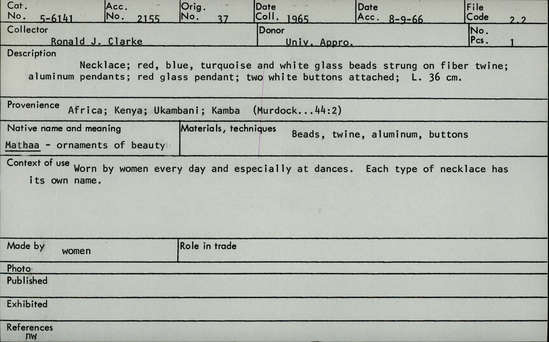 Cat. No. 5-6141 Acc. No. 2155 Orig. No. 37 Date Coll. 1965 Date Acc. 8-9-66 File Code 2.2
Collector Ronald J. Clarke Donor Univ. Appro. No. Pcs. 1
Description
Necklace; red, blue, turquoise and white glass beads strung on fiber twine;
aluminum pendants; red glass pendant; two white buttons attached; L. 36 cm.
Provenience Africa; Kenya; Ukambani; Kamba (Murdock...44:2)
Native name and meaning
Mathaa - ornaments of beauty
Materials, techniques Beads, twine, aluminum, buttons
Context of use Worn by women every day and especially at dances. Each type of necklace has
its own name.
Made by women Role in trade
Photo
Published
Exhibited
References
nw